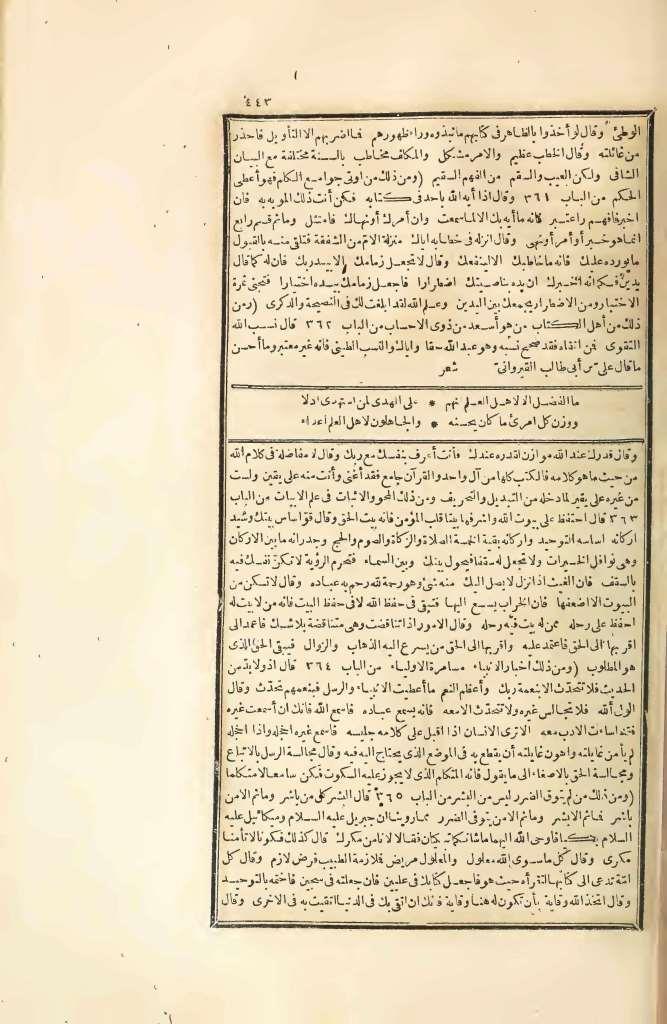 ٤٤٣
الوطئ وقال لو أخذوا بالظاهر فى كتابهم ما نبذوه وراء ظهورهم فما اضربهم الا التأويل فاحذر
من غائلته وقال الخطاب عظيم والامر مشكل والمكلف مخاطب بالسنة مختلفة مع البيان
الشافى ولكن العيب والسقم من الفهم السقيم (ومن ذلك من اوتى جوامع الكلم فهو أعطى
الحكم من الباب ٣٦١ وقال اذا أيه الله بأحد فى كتابه فكن أنت ذلك المويه به فان
اخبر فافهم راعتبر فانه ما أيه بك الا لما سمعت وان أمرك أو نهاك فامتثل وما ثم قسم رابع
انما هو خبر أو أمر أو نهى وقال انزله فى خطابه اياك منزلة الام من الشفقة فتلق منه بالقبول
ما يورده عليك فانه ما خاطبك الا لينفعك وقال لا تجعل زمامك الا بيد ربك فان له كما قال
يدين فكما انه اخبرك ان يده بناصيتك اضطرارا فاجعل زمامك بيده اختيارا فتجنى ثمرة
الاختيار ومن الاضطرار يجمعك بين اليدين وعلم الله لقد ابلغت لك فى النصيحة والذكرى (ومن
ذلك من أهل الكتاب من هو أسعد من ذوى الاحساب من الباب ٣٦٢ قال نسب الله
التقوى فمن اتقاه فقد صح نسبه وهو عبد الله حقا واياك والنسب الطينى فانه غير معتبر وما أحسن
ما قال على بن أبى طالب القيروانى شعر
ما الفضل الا لاهل العلم انهم * على الهدى لمن استهدى ادلا
ووزن كل امرئ ما كان يحسنه * والجاهلون لاهل العلم أعداء
وقال قدرك عند الله موازن لقدره عندك فأنت أعرف بنفسك مع ربك وقال لا مفاضلة فى كلام الله
من حيث ما هو كلامه فالكتب كلها من آل واحد والقرآن جامع فقد أغنى وأنت منه على يقين ولست
من غيره على يقين لما دخله من التبديل والتحريف ومن ذلك المحو والاثبات فى علم الابيات من الباب
٣٦٣ قال احتفظ على بيوت الله واشرفها بيتا قلب المؤمن فانه بيت الحق وقال قو اساس بيتك وشيد
اركانه اساسه التوحيد واركانه بقية الخمسة الصلاة والزكاة والصوم والحج وجدرانه ما بين الاركان
وهى نوافل الخيرات ولا تجعل له سقفا فيحول بينك وبين السماء فتحرم الرؤية لا تكن نفسك فيه
بالسقف فان الغيث اذا نزل لا يصل اليك منه شئ وهو رحمة لله رحم به عباده وقال لا تسكن من
البيوت الا اضعفها فان الخراب يسرع اليها فتبقى فى حفظ الله لا فى حفظ البيت فانه من لا بيت له
احفظ على رحله ممن له بيت فيه رحله وقال الامور اذا تناقضت وهى متناقضة بلا شك فاعمد الى
اقربها الى الحق فاعتمد عليه واقربها الى الحق من يسرع اليه الذهاب والزوال فيبقى الحق الذى
هو المطلوب (ومن ذلك أخبار الانبياء مسامرة الاولياء من الباب ٣٦٤ قال اذ ولا بد من
الحديث فلا تتحدث الا بنعمة ربك وأعظم النعم ما أعطيت الانبياء والرسل فبنعمهم تحدث وقال
الولى الله فلا تجالس غيره ولا تتحدث الا معه فانه يسمع عباده فاسمع الله فانك ان أسمعت غيره
فقد اسأءت الادب معه الا ترى الانسان اذا اقبل على كلامه جليسه فاسمع غيره اخجله واذا اخجله
لم يأمن غايلته واهون غايلته أن يقطع به فى الموضع الذى يحتاج اليه فيه وقال مجالسة الرسل بالاتباع
ومجالسة الحق بالاصغاء الى ما يقول فانه المتكلم الذى لا يجوز عليه السكوت فكن سامعا لا متكلما
(ومن ذلك من لم يتوق الضرر ليس من البشر من الباب ٣٦٥ قال البشر كل من باشر وما ثم الا من
باشر فما ثم الا بشر وما ثم الا من يتوقى الضرر مما روينا ان جبريل عليه السلام وميكائيل عليه
السلام بكيا فاوحى الله اليهما ما شأنكما تبكيان فقالا لا نأمن مكرك قال كذلك فكونا لا تأمنا
مكرى وقال كل ما سوى الله معلول والمعلول مريض فلازمة الطبيب فرض لازم وقال كل
امة تدعى الى كتابها لتقرأه حيث هو فاجعل كتابك فى عليين فان جعلته فى سجين فاختمه بالتوحيد
وقال اتخذ الله وقاية بأن تكون له هنا وقاية فانك ان اتقى بك فى الدنيا اتقيت به فى الاخرى وقال